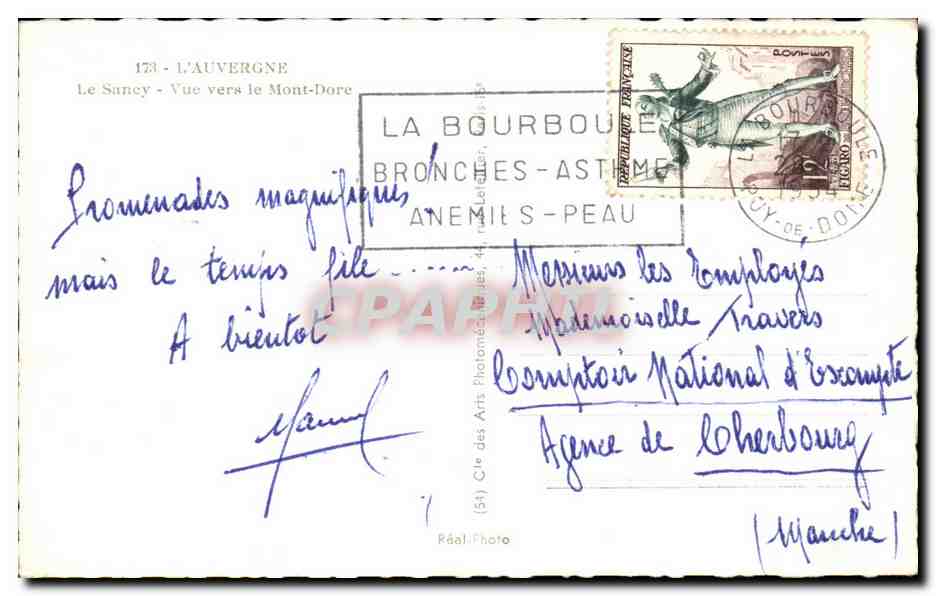 173 - L'AUVERGNE
Le Sancy - Vue vers le Mont-Dore
LA BOURBOULE
BRONCHES-ASTHME
ANEMIES-PEAU
RÉPUBLIQUE FRANÇAISE
POSTES
12F
FIGARO
LA BOURBOULE
PUY-DE-DOME
Promenades magnifiques!
mais le temps file......
A bientot
Messieurs les Employés
Mademoiselle Travers
Comptoir National d'Escompte
Agence de Cherbourg
(Manche)
(54) Cie des Arts Photomécaniques, 44, rue Letellier, Paris-15e
Réal-Photo
CPAPHIL